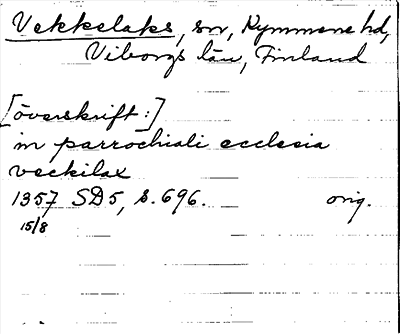 Vekkelaks, sn, Kymmene hd,
Viborgs län, Finland
[överskrift:]
in parrochiali ecclesia
veckilax
1357 SD5, s. 696. orig.
15/8